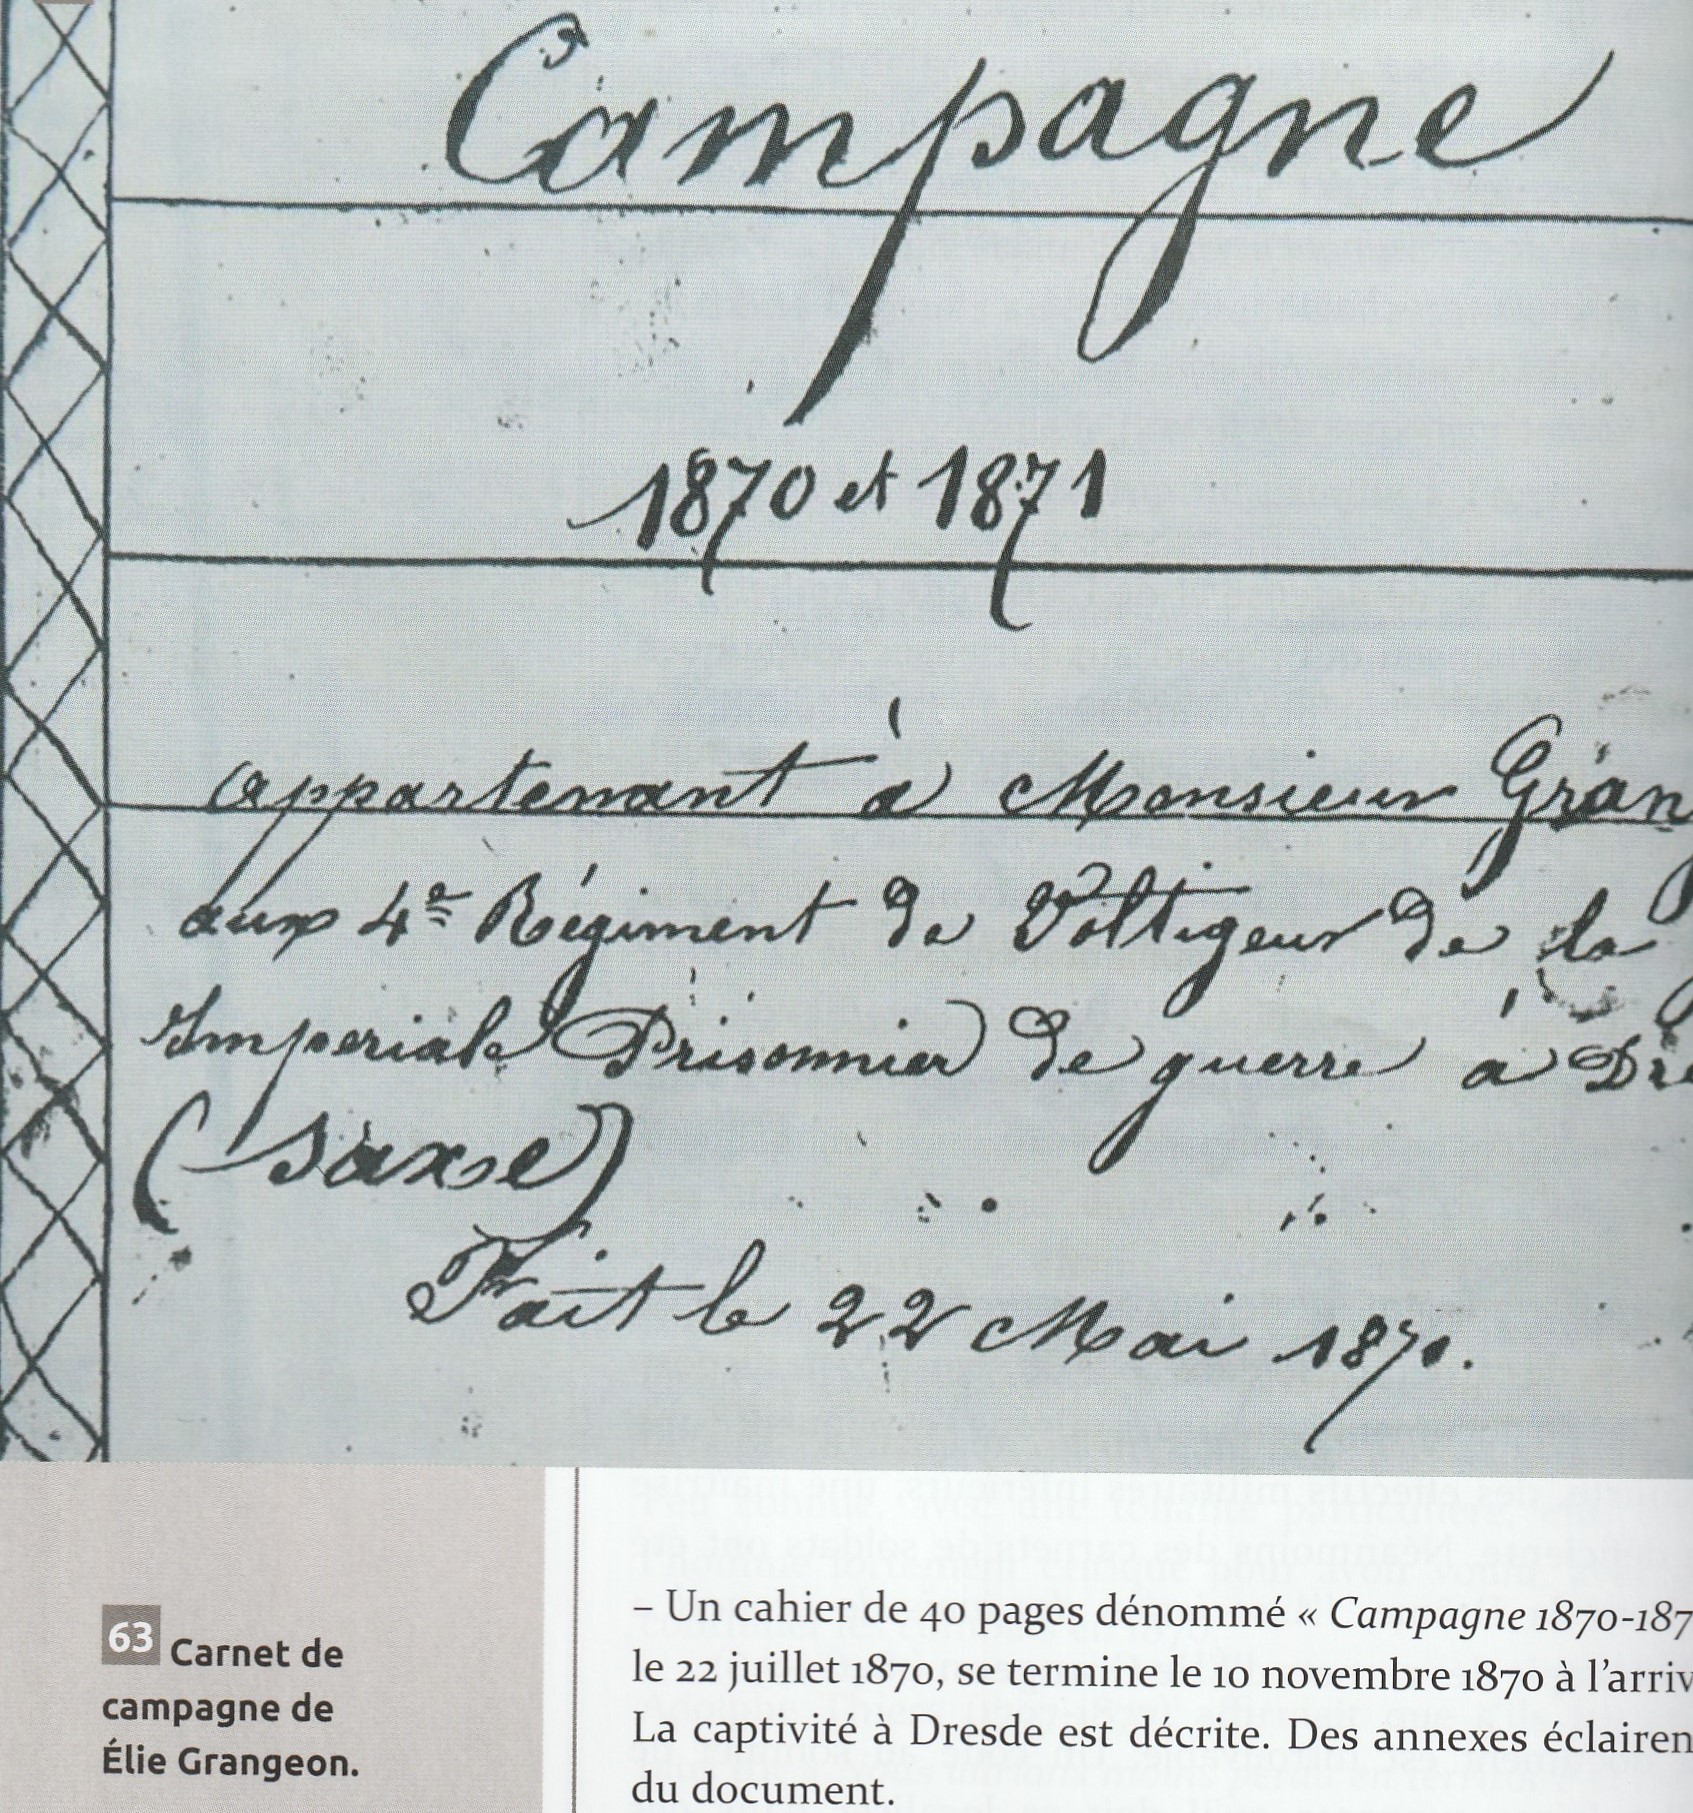 Campagne
1870 et 1871
appartenant à Monsieur Gran
aux 4e Régiment de Voltigeur de la
Imperiale Prisonnier de guerre à Dre
(Saxse)
Fait le 22 Mai 1871.
63 Carnet de
campagne de
Élie Grangeon.
– Un cahier de 40 pages dénommé « Campagne 1870-187
le 22 juillet 1870, se termine le 10 novembre 1870 à l’arriv
La captivité à Dresde est décrite. Des annexes éclairen
du document.